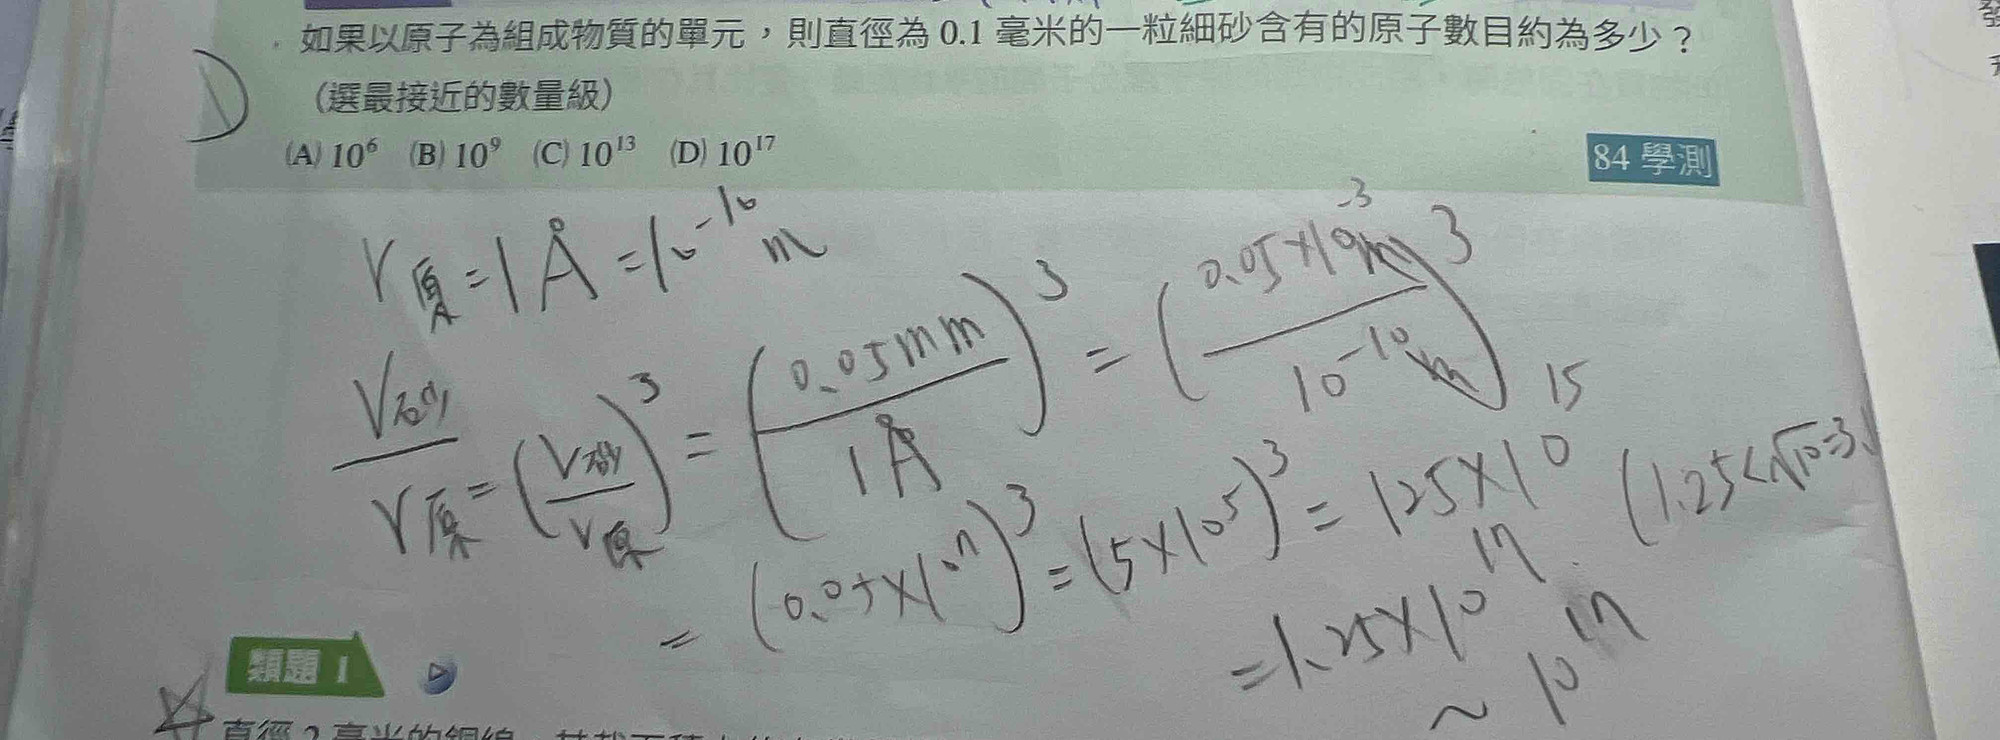 如果以原子為組成物質的單元，則直徑為 0.1 毫米的一粒細砂含有的原子數目約為多少？
D （選最接近的數量級）
(A) 10⁶ (B) 10⁹ (C) 10¹³ (D) 10¹⁷
84 學測
r原 = 1 Å = 10⁻¹⁰ m
V砂/V原 = (r砂/r原)³ = (0.05mm/1Å)³ = (0.05×10⁻³m/10⁻¹⁰m)³
= (0.05×10⁷)³ = (5×10⁵)³ = 125×10¹⁵
= 1.25×10¹⁷ (1.25<√10=3.
~ 10¹⁷
類題 1
直徑 2 毫米的銅線